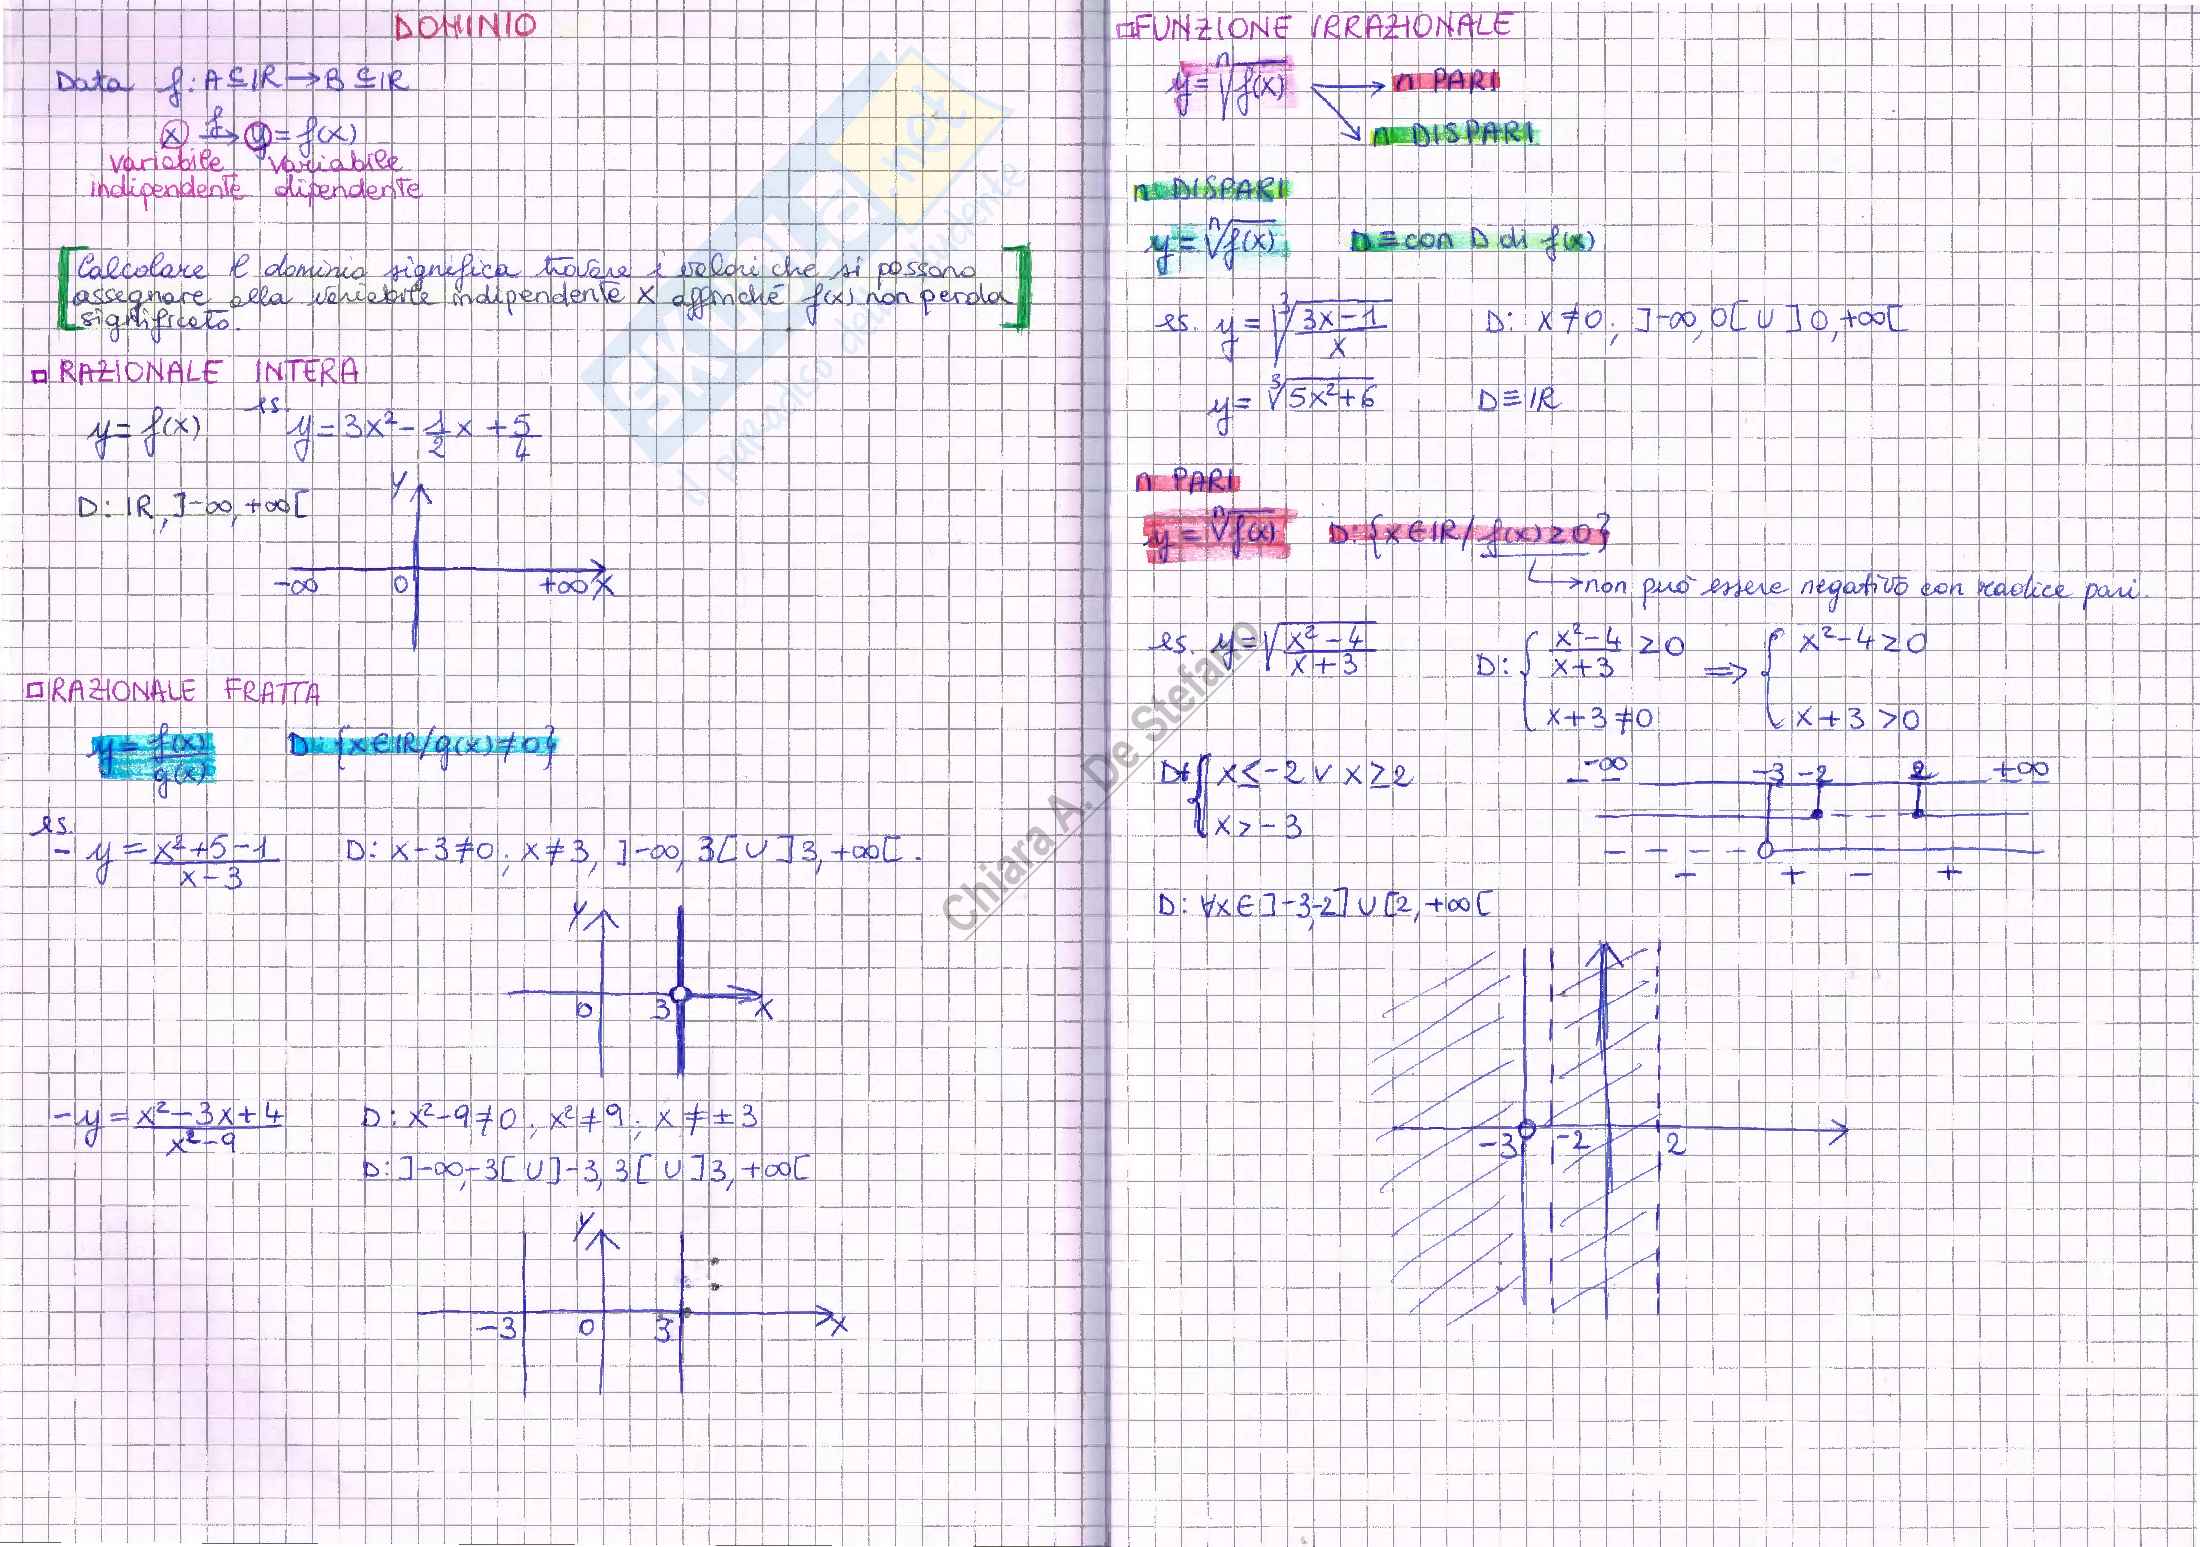 DOMINIO
Data f: A ⊆ IR → B ⊆ IR
x f→ y = f(x)
variabile variabile
indipendente dipendente
Calcolare il dominio significa trovare i valori che si possono
assegnare alla variabile indipendente x affinché f(x) non perda
significato.
RAZIONALE INTERA
y = f(x) es. y = 3x² - 1/2 x + 5/4
D: IR, ]-∞, +∞[
y
-∞ 0 +∞ x
RAZIONALE FRATTA
y = f(x)/g(x) D: {x∈IR/g(x)≠0}
es.
- y = x²+5-1/x-3 D: x-3≠0; x≠3, ]-∞, 3[ ∪ ]3, +∞[.
y
0 3 x
- y = x²-3x+4/x²-9 D: x²-9≠0; x²≠9; x≠±3
D: ]-∞,-3[ ∪ ]-3, 3[ ∪ ]3, +∞[
y
-3 0 3 x
FUNZIONE IRRAZIONALE
y = ⁿ√f(x) n PARI
n DISPARI
n DISPARI
y = ⁿ√f(x) D ≡ con D di f(x)
es. y = ³√3x-1/x D: x≠0; ]-∞, 0[ ∪ ]0, +∞[
y = ³√5x²+6 D ≡ IR
n PARI
y = ⁿ√f(x) D: {x∈IR/ f(x)≥0}
→ non può essere negativo con radice pari.
es. y = √x²-4/x+3 D: { x²-4/x+3 ≥0 ⇒ { x²-4≥0
x+3≠0 x+3>0
D: { x≤-2 ∨ x≥2
x>-3
-∞ -3 -2 2 +∞
- + - +
D: ∀x∈]-3,-2] ∪ [2, +∞[
-3 -2 2
SKUOLA.net
il paradiso dello studente
Chiara A. De Stefano